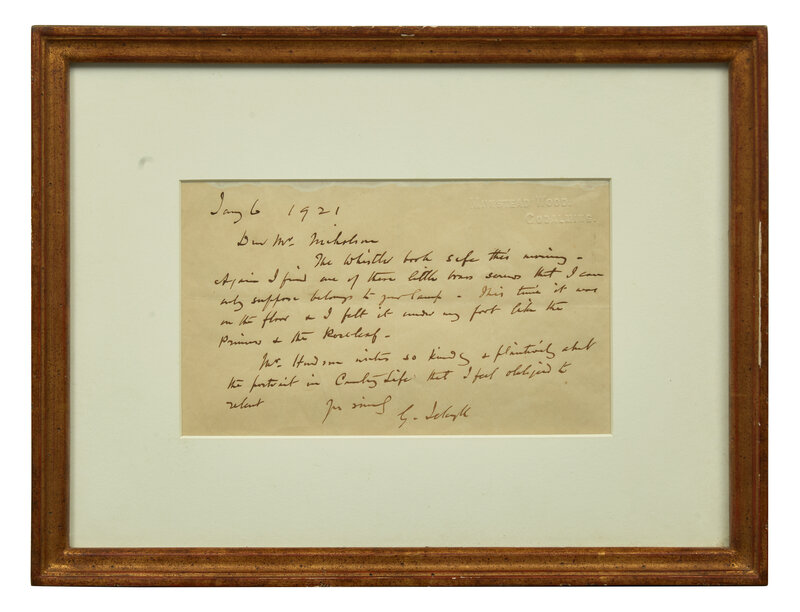 MUNSTEAD WOOD,
GODALMING.
Jany 6 1921
Dear Mr. Nicholson
The Whistler book safe this morning -
Again I find one of these little brass screws that I can
only suppose belongs to your lamp - This time it was
on the floor & I felt it under my foot like the
Princess & the Roseleaf -
Mr. Hudson writes so kindly & plaintively about
the portrait in Country Life that I feel obliged to
relent
Yrs sincely
G. Jekyll